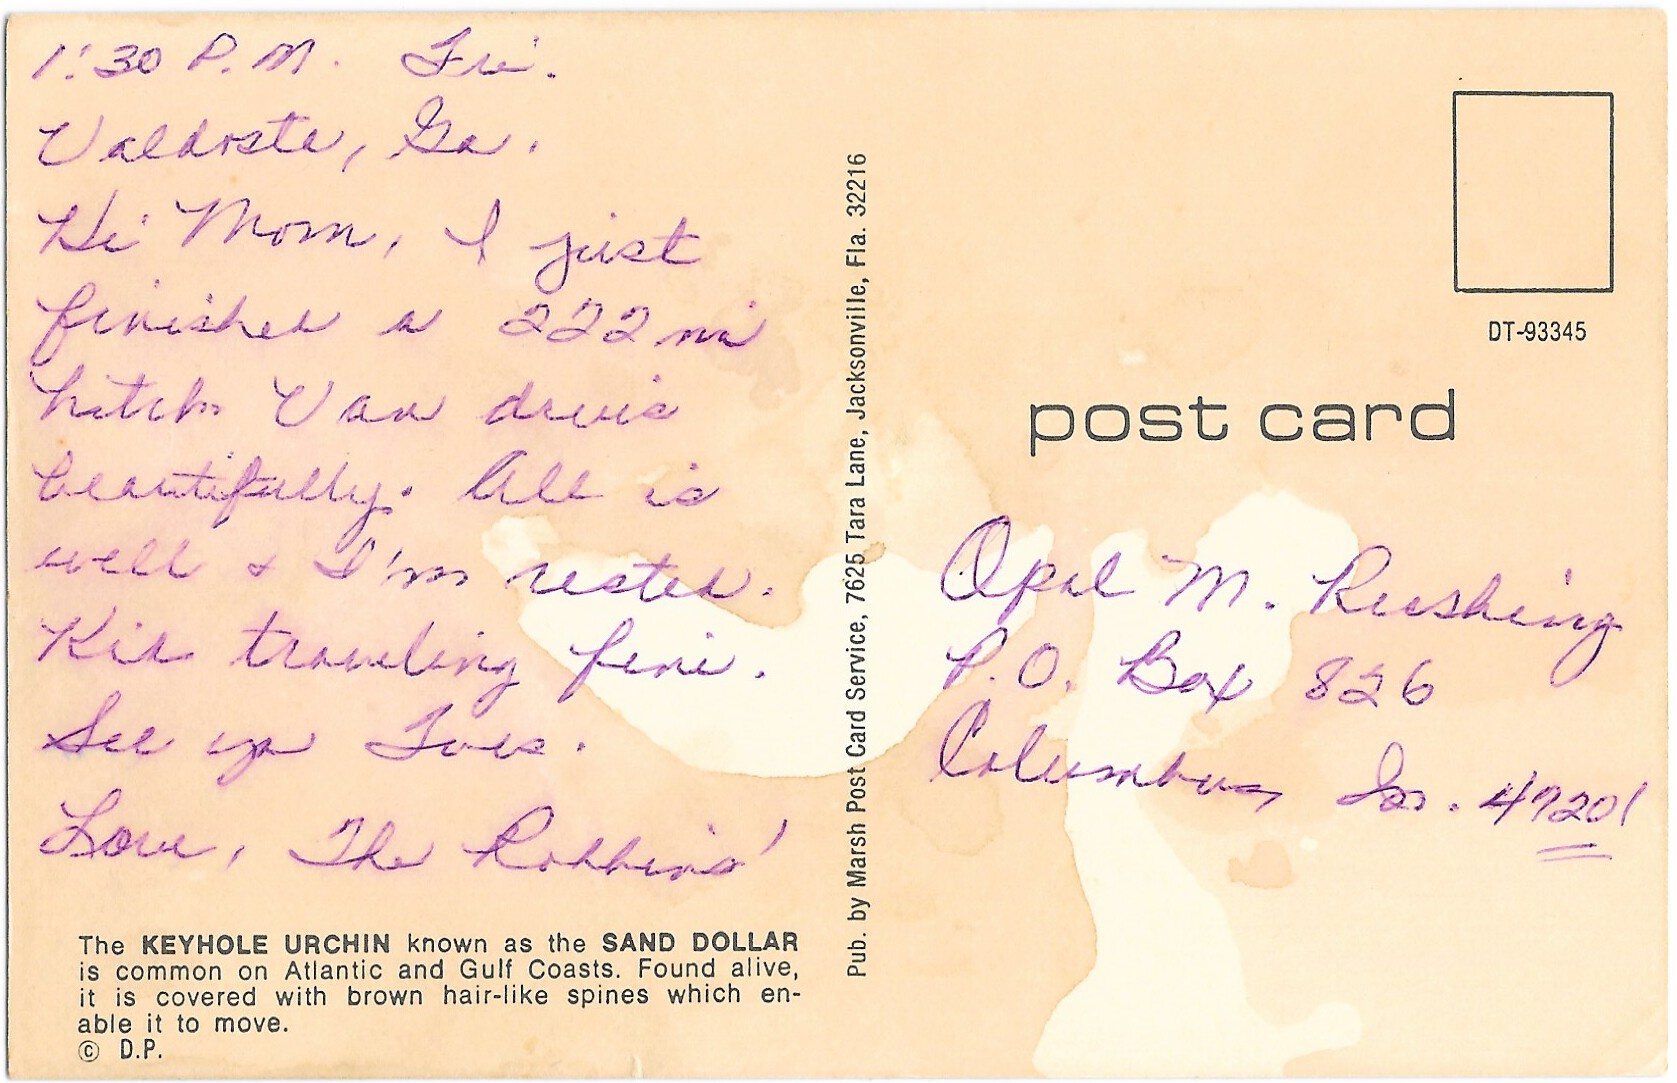 1:30 P.M. Fri.
Valdosta, Ga.
Hi Mom, I just
finished a 222 mi
hitch Van drives
beautifully. All is
well & I'm rested.
Kids traveling fine.
See ya Tues.
Love, The Robbins'
The KEYHOLE URCHIN known as the SAND DOLLAR
is common on Atlantic and Gulf Coasts. Found alive,
it is covered with brown hair-like spines which en-
able it to move.
© D.P.
Pub. by Marsh Post Card Service, 7625 Tara Lane, Jacksonville, Fla. 32216
DT-93345
post card
Opal M. Rushing
P.O. Box 826
Columbus, In. 47201